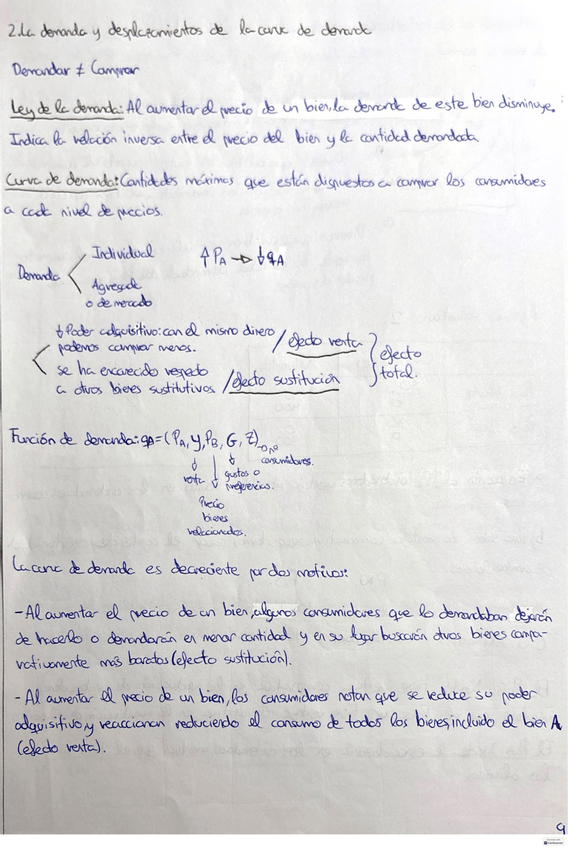 2.La demanda y desplazamientos de la curva de demanda
Demandar ≠ Comprar
Ley de la demanda: Al aumentar el precio de un bien, la demanda de este bien disminuye.
Indica la relación inversa entre el precio del bien y la cantidad demandada
Curva de demanda: Cantidades máximas que están dispuestos a comprar los consumidores
a cada nivel de precios.
Demanda < Individual ↑ PA → ↓ qA
Agregada
o de mercado
↓ Poder adquisitivo: con el mismo dinero / efecto renta
podemos comprar menos.
se ha encarecido respecto
a otros bienes sustitutivos / efecto sustitución
} efecto
total.
Función de demanda: qA = (PA, Y, PB, G, Z) → nº
consumidores.
renta
gustos o
preferencias.
Precio
bienes
relacionados.
La curva de demanda es decreciente por dos motivos:
- Al aumentar el precio de un bien, algunos consumidores que lo demandaban dejarán
de hacerlo o demandarán en menor cantidad y en su lugar buscarán otros bienes compa-
rativamente más baratos (efecto sustitución).
- Al aumentar el precio de un bien, los consumidores notan que se reduce su poder
adquisitivo, y reaccionan reduciendo el consumo de todos los bienes, incluido el bien A
(efecto renta).
9